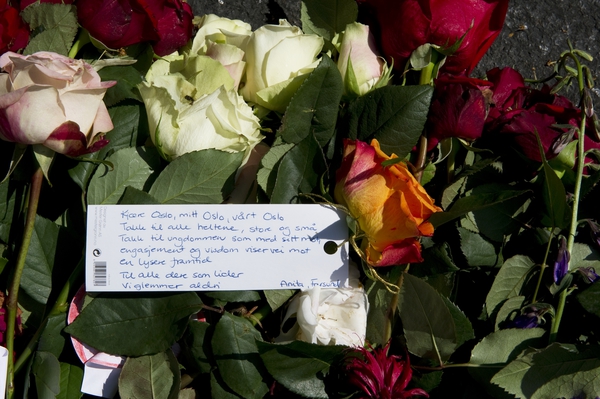 Kjære Oslo, mitt Oslo, vårt Oslo
Takk til alle heltene, store og små
Takk til ungdommene som med sitt mot,
engasjement og visdom viser vei mot
en lysere framtid
Til alle dere som lider
Vi glemmer aldri
Anita,